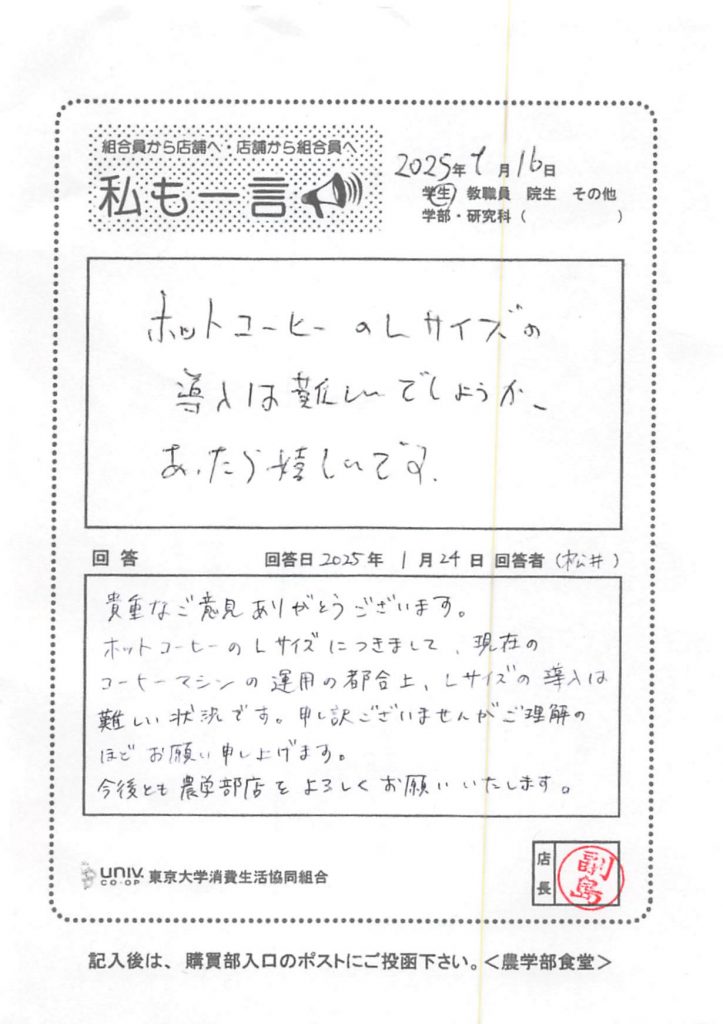 組合員から店舗へ・店舗から組合員へ
私も一言
2025年1月16日
学生 教職員 院生 その他
学部・研究科( )
ホットコーヒーのLサイズの
導入は難しいでしょうか、
あったら嬉しいです.
回答 回答日2025年1月24日 回答者(松井)
貴重なご意見ありがとうございます。
ホットコーヒーのLサイズにつきまして、現在の
コーヒーマシンの運用の都合上、Lサイズの導入は
難しい状況です。申し訳ございませんがご理解の
ほどお願い申し上げます。
今後とも農学部店をよろしくお願いいたします。
UNIV.
CO-OP
東京大学消費生活協同組合
店長
副島
記入後は、購買部入口のポストにご投函下さい。<農学部食堂>